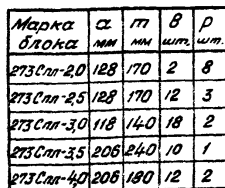 Марка блока а мм т мм в шт. р шт.
273Спл-2,0 128 170 2 8
273Спл-2,5 128 170 12 3
273Спл-3,0 118 140 18 2
273Спл-3,5 206 240 10 1
273Спл-4,0 206 180 12 2